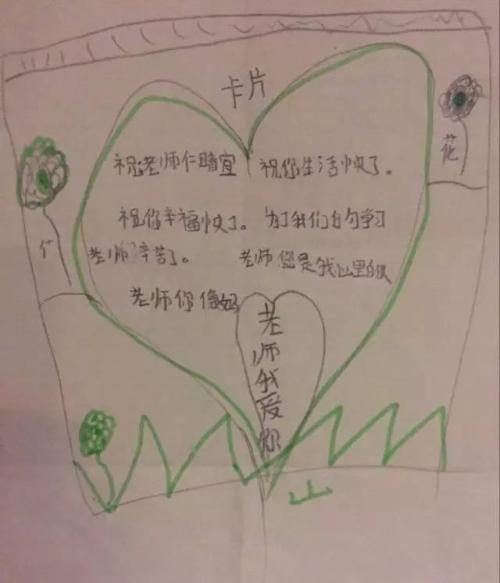 卡片
花
祝老师仁晴宜 祝你生活快了。
祝你辛福快了。为了我们的学习
老师辛苦了。 老师您是我心里的
老师你像妈
老师我爱你
山